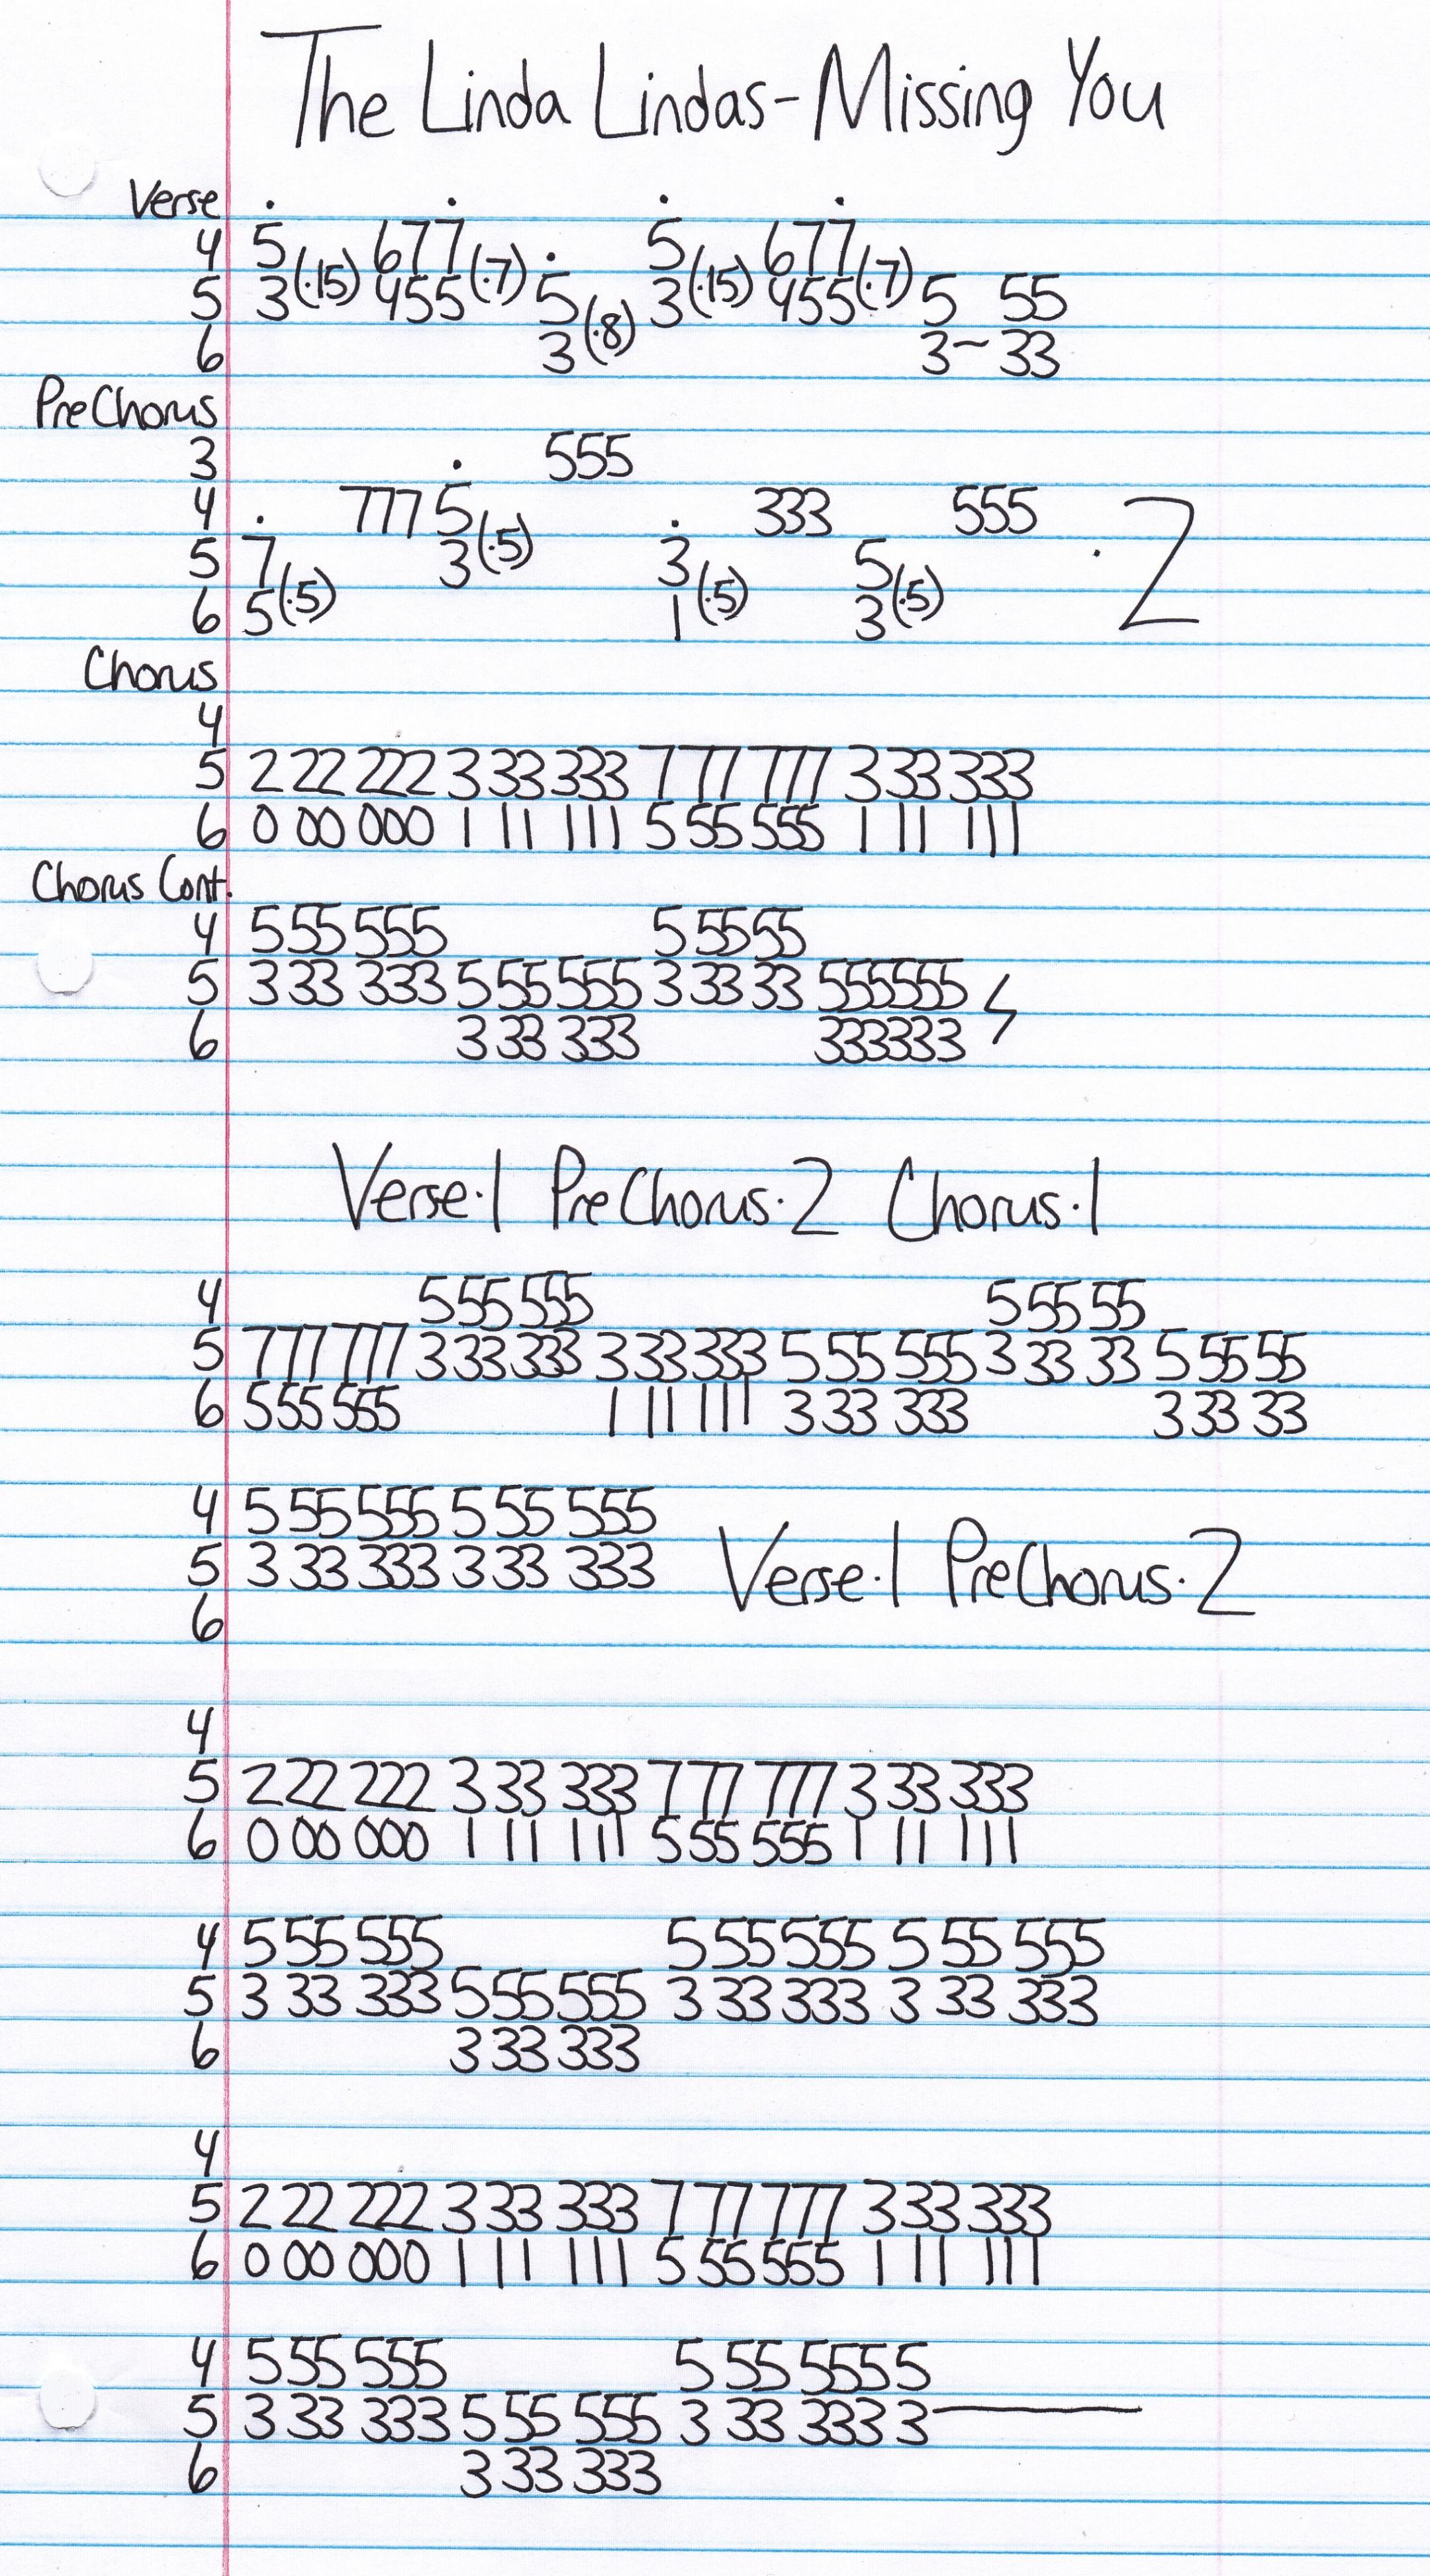 The Linda Lindas-Missing You
Verse
4 5 677 5 677
5 3(·15) 455(·7) 5 3(·15) 455(·7) 5 55
6 3(·8) 3~33
PreChorus
3 555
4 777 5 333 555
5 7 3(·5) 3 5 ·2
6 5(·5) 1(·5) 3(·5)
Chorus
4
5 2 22 222 3 33 333 7 77 777 3 33 333
6 0 00 000 1 11 111 5 55 555 1 11 111
Chorus Cont.
4 5 55 555 5 55 55
5 3 33 333 5 55 555 3 33 33 555555
6 3 33 333 333333
Verse·1 PreChorus·2 Chorus·1
4 5 55 555 5 55 55
5 7 77 777 3 33 333 3 33 333 5 55 555 3 33 33 5 55 55
6 5 55 555 1 11 111 3 33 333 3 33 33
4 5 55 555 5 55 555
5 3 33 333 3 33 333 Verse·1 PreChorus·2
6
4
5 2 22 222 3 33 333 7 77 777 3 33 333
6 0 00 000 1 11 111 5 55 555 1 11 111
4 5 55 555 5 55 555 5 55 555
5 3 33 333 5 55 555 3 33 333 3 33 333
6 3 33 333
4
5 2 22 222 3 33 333 7 77 777 3 33 333
6 0 00 000 1 11 111 5 55 555 1 11 111
4 5 55 555 5 55 555 5
5 3 33 333 5 55 555 3 33 333 3
6 3 33 333